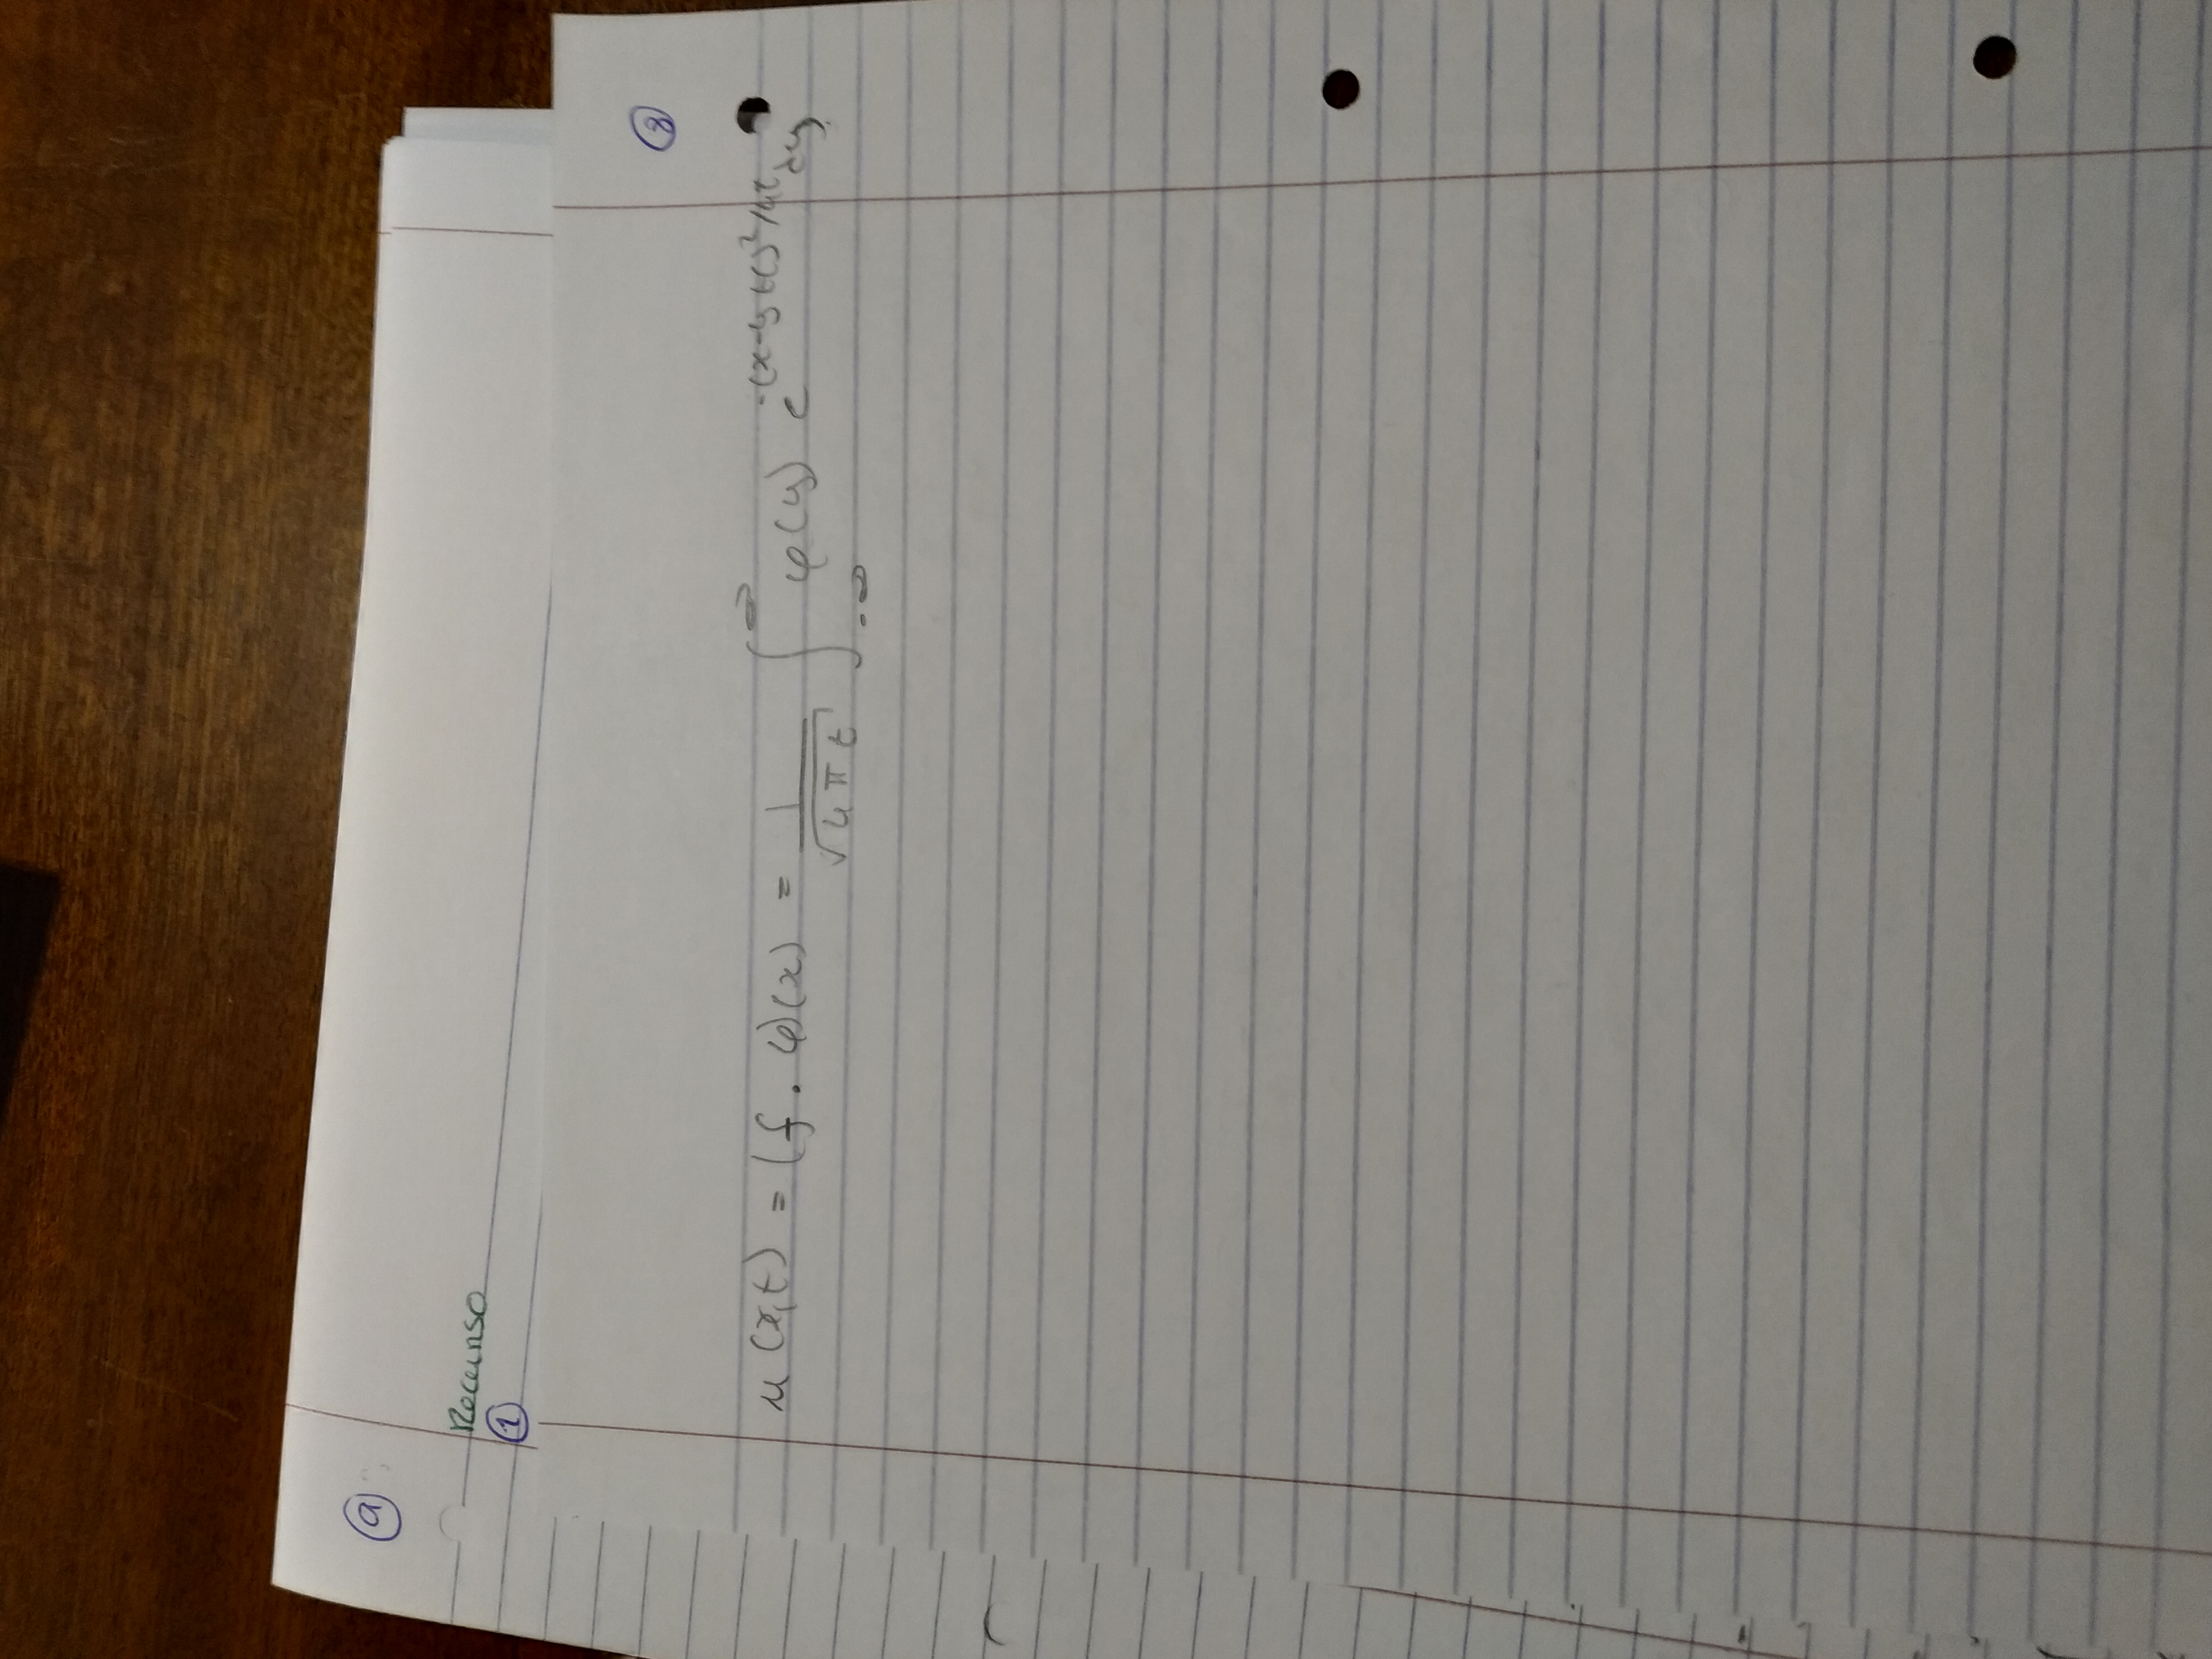 9
Recurso
1
3
u(x,t) = (f . φ)(x) = 1/√(4πt) ∫_{-∞}^{∞} φ(y) e^{-(x-y+t)²/4t} dy.